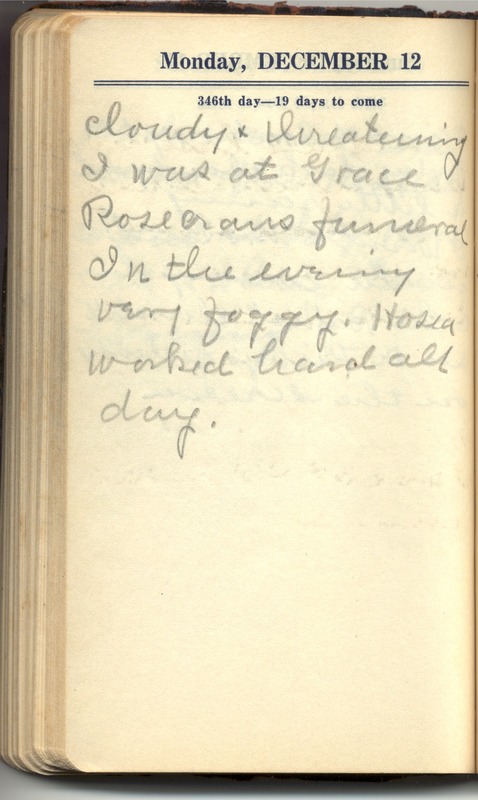 Monday, DECEMBER 12
346th day—19 days to come
Cloudy & threatening
I was at Grace
Rosecrans funeral
In the evening
very foggy. Hosea
worked hard all
day.